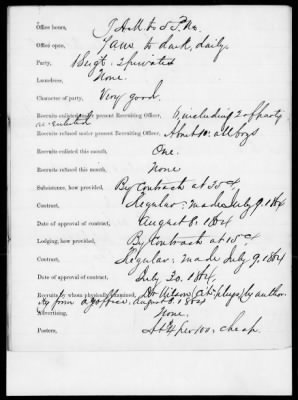 Office hours, 7 A.M. to 5 P.M.
Office open, 7 a.m. to dark, daily.
Party, 1 Sergt: 2 privates
Laundress, None.
Character of party, Very good.
Recruits enlisted under present Recruiting Officer, 6, including 2 of party
re-enlisted
Recruits refused under present Recruiting Officer, About 10: all boys
Recruits enlisted this month, One.
Recruits refused this month, None
Subsistence, how provided, By Contract at 35 c
Contract, Regular: made July 9, 1864
Date of approval of contract, August 6, 1864
Lodging, how provided, By Contract at 15 c
Contract, Regular: made July 9, 1864
Date of approval of contract, July 30, 1864,
Recruits by whom physically examined, Dr Wilson (Cit: phys) by author
ity from office, August 1864
Advertising, None.
Posters, At $4 per 100: cheap.